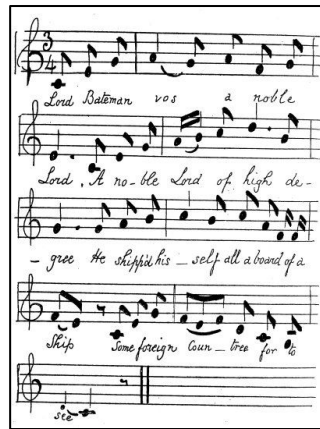 3
4
Lord Bateman vos a noble
Lord, A no-ble Lord of high de-
- gree He shipp'd his _ self all a board of a
Ship Some foreign Coun _ tree for to
see